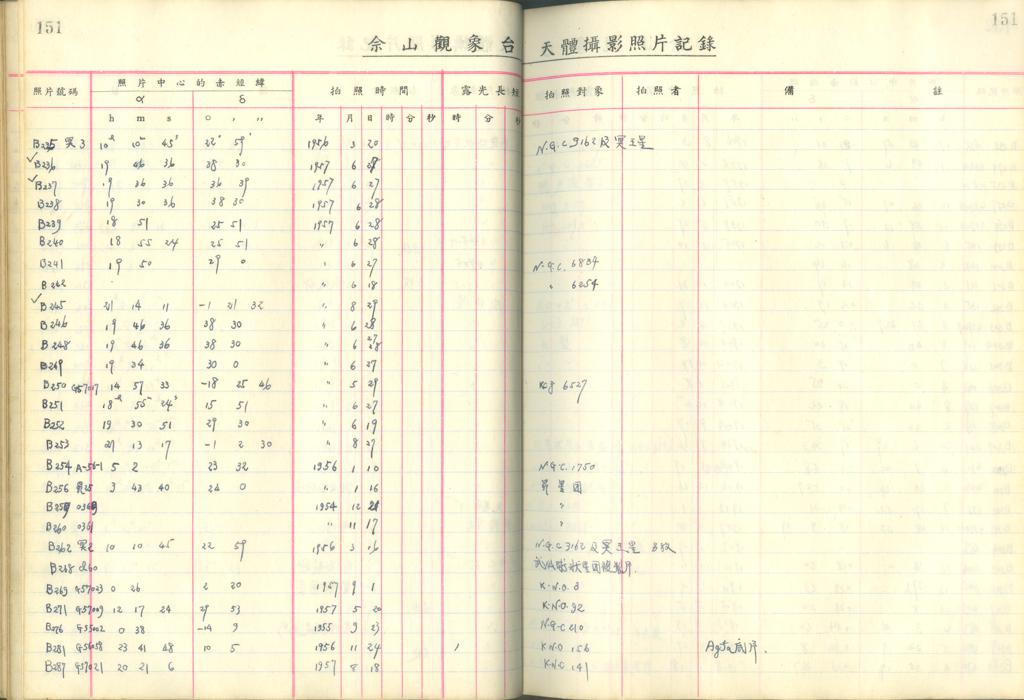 151
151
佘山觀象台 天體攝影照片記錄
照片號碼 照片中心的赤經緯 拍照時間 露光長短 拍照對象 拍照者 備 註
α δ
h m s ° ′ ″ 年 月 日 時 分 秒 時 分 秒
B235 冥3 10h 10m 45s 22° 59′ 1956 3 20 N.G.C. 3162 及冥王星
B236 19 46 36 38 30 1957 6
B237 19 36 36 36 39 1957 6 27
B238 19 30 36 38 30 1957 6 28
B239 18 51 25 51 1957 6 28
B240 18 55 24 25 51 〃 6 28
B241 19 50 29 0 〃 6 27 N.G.C. 6834
B242 〃 6 18 〃 6254
B245 21 14 11 -1 21 32 〃 8 29
B246 19 46 36 38 30 〃 6 28
B248 19 46 36 38 30 〃 6
B249 19 34 30 0 〃 6 27
B250 G57017 14 57 33 -18 25 46 〃 5 29 6527
B251 18h 55m 24s 15 51 〃 6 27
B252 19 30 51 29 30 〃 6 19
B253 21 13 17 -1 2 30 〃 8 27
B254 A-56-1 5 2 23 32 1956 1 10 N.G.C. 1750
B256 昴25 3 43 40 24 0 〃 1 16 昴星团
1954 12 〃
B260 0361 〃 11 17 〃
B262 冥2 10 10 45 22 59 1956 3 16 N.G.C 3162 及冥王星
B268
B269 G57023 0 26 2 20 1957 9 1 K.N.O. 8
B271 G57009 12 17 24 29 53 1957 5 20 K.N.O. 92
B276 G55002 0 38 -14 9 1955 9 23 N.G.C 210
B281 G56058 23 41 48 10 5 1956 11 24 K.N.O 156 Agfa底片.
B287 G57021 20 21 6 1957 8 18 K.N.O 141